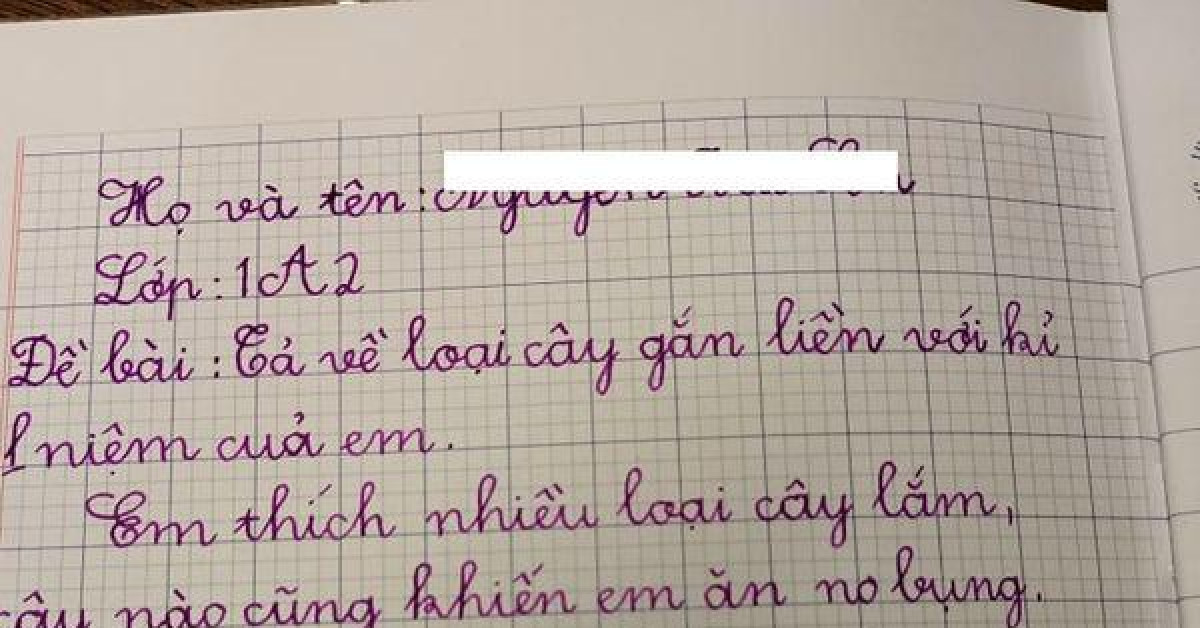 Họ và tên:
Lớp: 1A2
Đề bài: Tả về loại cây gắn liền với kỉ
niệm cuả em.
Em thích nhiều loại cây lắm,
cây nào cũng khiến em ăn no bụng.